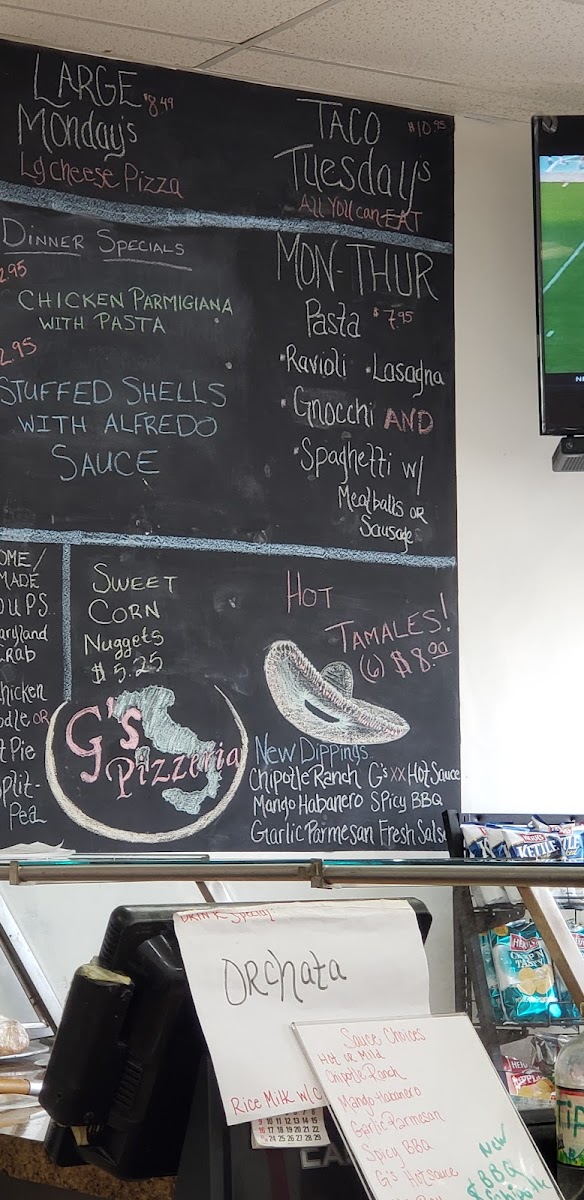 LARGE $8.49
Monday's
Lg cheese Pizza
TACO $10.95
Tuesday's
All You can EAT
DINNER SPECIALS
2.95
CHICKEN PARMIGIANA
WITH PASTA
2.95
STUFFED SHELLS
WITH ALFREDO
SAUCE
MON-THUR
Pasta $7.95
•Ravioli •Lasagna
•Gnocchi AND
•Spaghetti w/
Meatballs OR
Sausage
OME/
MADE
OUPS
aryland
CRAB
hicken
odle OR
t Pie
plit-
Pea
SWEET
CORN
Nuggets
$5.25
G's
Pizzeria
HOT
TAMALES!
(6) $8.00
New Dippings
Chipotle Ranch G's xx Hot Sauce
Mango Habanero Spicy BBQ
Garlic Parmesan Fresh Salsa
KETTLE
HERR'S
CRISP N
TASTY
DRINK Special
ORCHata
Rice Milk w/C
Sauce Choices
Hot or Mild
Chipotle Ranch
Mango Habanero
Garlic Parmesan
Spicy BBQ
G's Hot sauce
New
BBQ
9 10 11 12 13 14 15
16 17 18 19 20 21 22
24 25 26 27 28 29